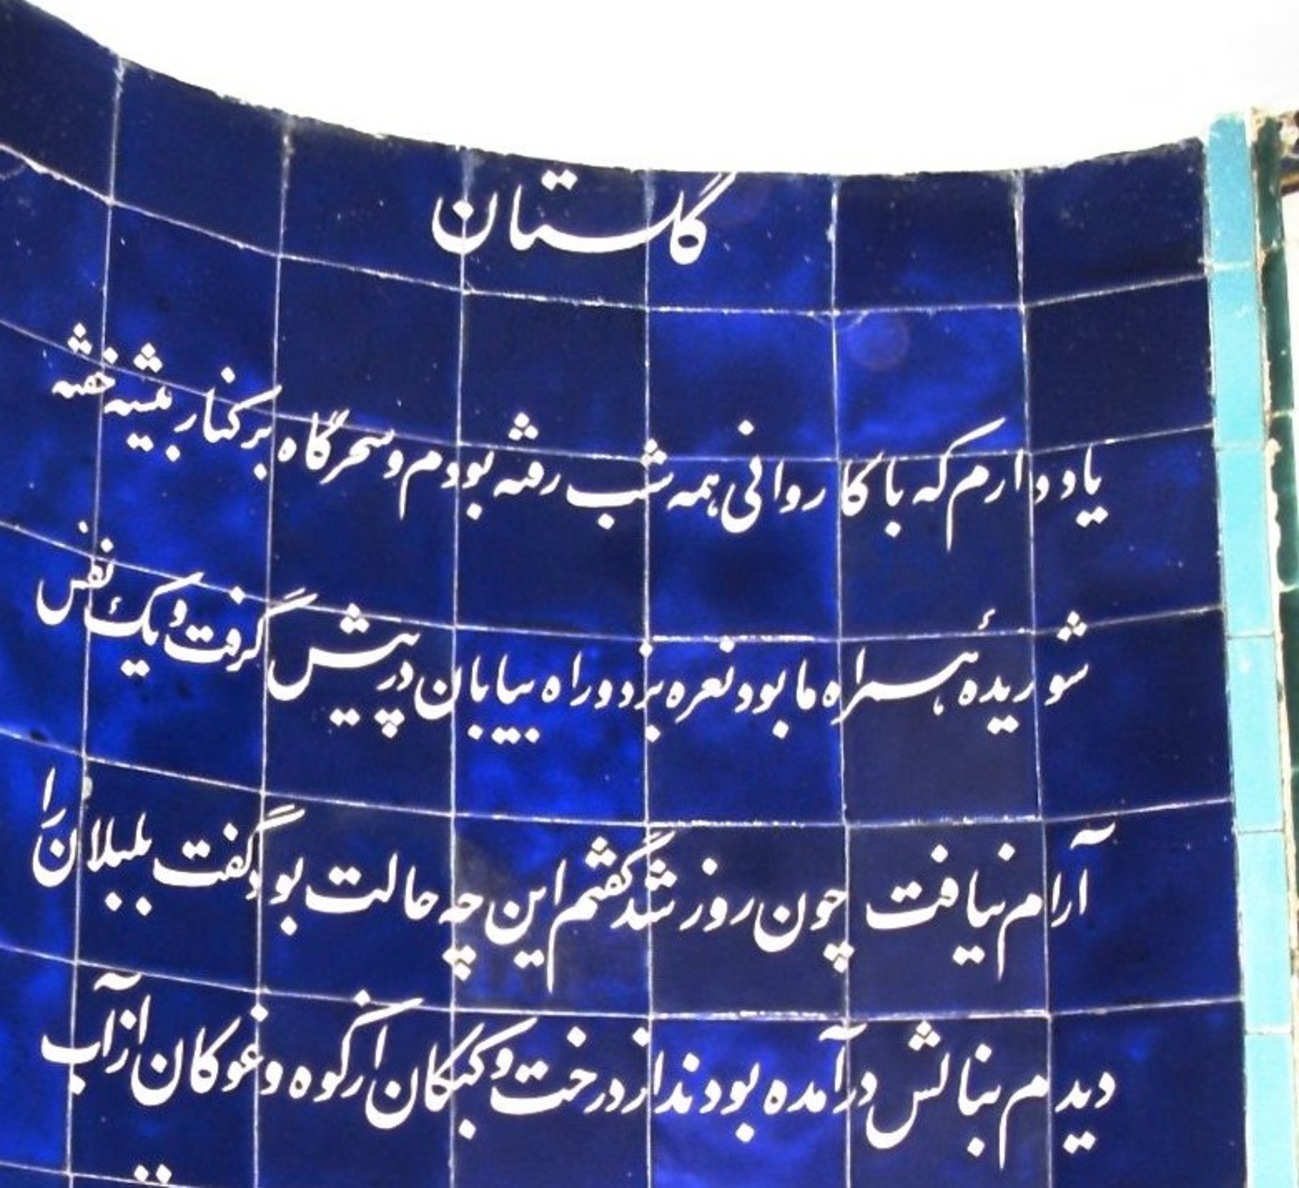 گلستان
یاد دارم که با کاروانی همه شب رفته بودم و سحرگاه بر کنار بیشه خفته
شوریدهٔ همراه ما بود نعره بزد و راه بیابان در پیش گرفت و یک نفس
آرام نیافت چون روز شد گفتم این چه حالت بود گفت بلبلان را
دیدم بنالش در آمده بودند از درخت و کبکان از کوه و غوکان از آب